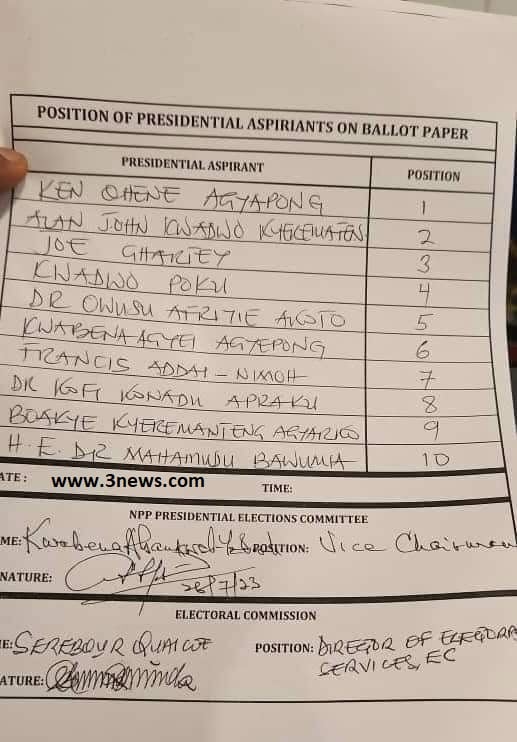 POSITION OF PRESIDENTIAL ASPIRIANTS ON BALLOT PAPER
PRESIDENTIAL ASPIRANT POSITION
KEN OHENE AGYAPONG 1
ALAN JOHN KWADWO KYEREMATEN 2
JOE GHARTEY 3
KWADWO POKU 4
DR OWUSU AFRIYIE AKOTO 5
KWABENA AGYEI AGYEPONG 6
FRANCIS ADDAI-NIMOH 7
DR KOFI KONADU APRAKU 8
BOAKYE KYEREMANTENG AGYARKO 9
H.E. DR MAHAMUDU BAWUMIA 10
ATE: www.3news.com TIME:
NPP PRESIDENTIAL ELECTIONS COMMITTEE
ME: Kwabena OSITION: Vice Chairman
NATURE: 28/7/23
ELECTORAL COMMISSION
E: SEREBOUR QUAICOE POSITION: DIRECTOR OF ELECTORAL
SERVICES, EC
ATURE: